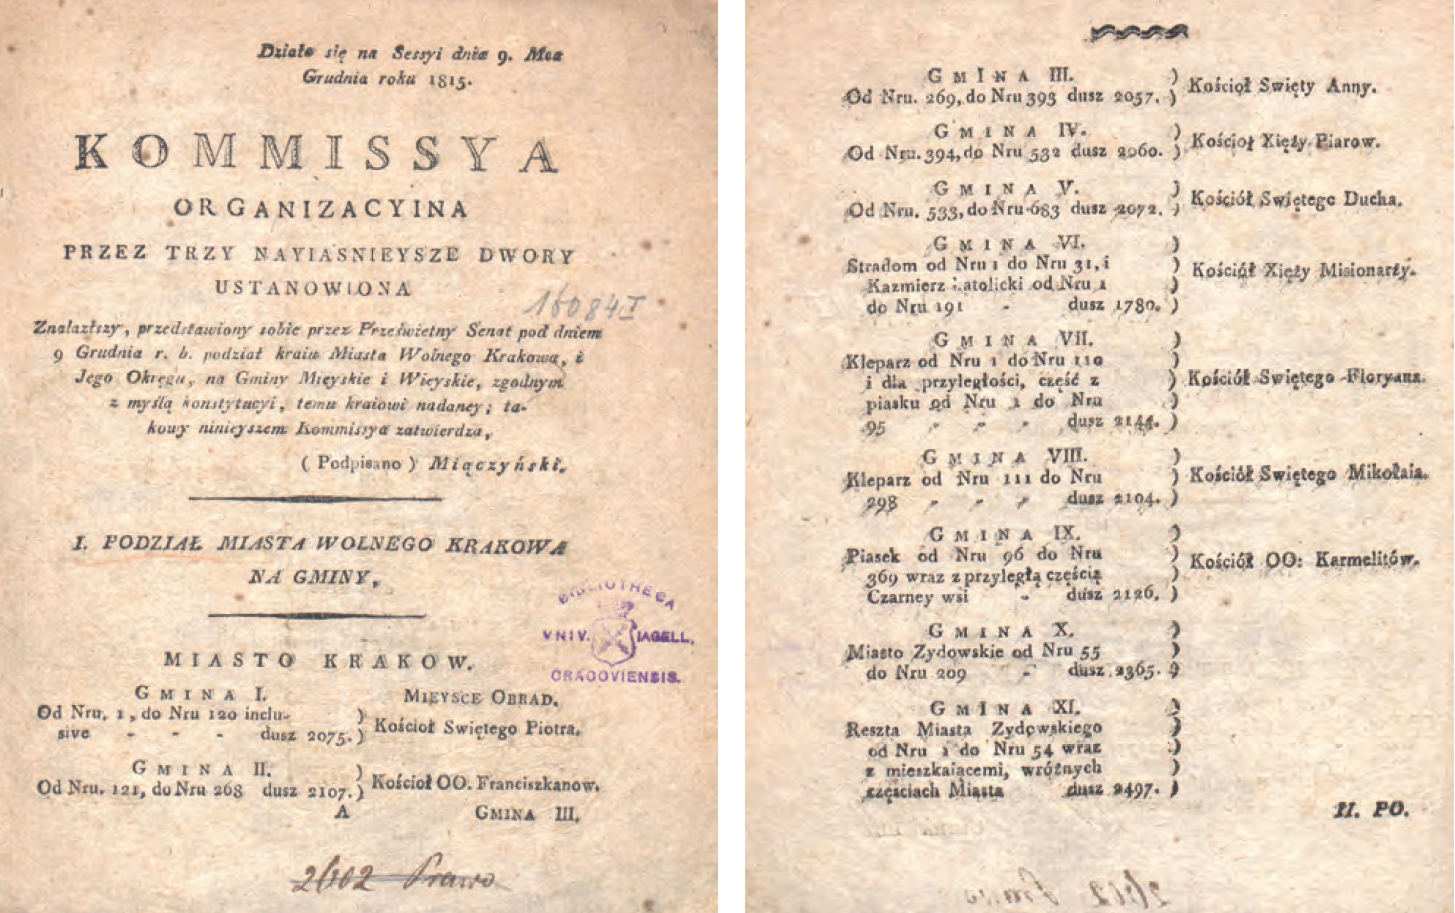 Działo się na Sessyi dnia 9. Mca
Grudnia roku 1815.
KOMMISSYA
ORGANIZACYINA
PRZEZ TRZY NAYIAŚNIEYSZE DWORY
USTANOWIONA
16084 I
Znalazłszy, przedstawiony sobie przez Prześwietny Senat pod dniem
9 Grudnia r. b. podział kraiu Miasta Wolnego Krakowa, i
Jego Okręgu, na Gminy Mieyskie i Wieyskie, zgodnym
z myślą konstytucyi, temu kraiowi nadaney; ta-
kowy ninieyszem Kommissya zatwierdza,
( Podpisano ) Miączyński.
I. PODZIAŁ MIASTA WOLNEGO KRAKOWA
NA GMINY,
BIBLIOTHECA
VNIV. IAGELL.
CRACOVIENSIS.
MIASTO KRAKOW.
GMINA I. MIEYSCE OBRAD.
Od Nru. 1, do Nru 120 inclu- )
sive - - - dusz 2075. ) Kościoł Swiętego Piotra.
GMINA II. )
Od Nru. 121, do Nru 268 dusz 2107. ) Kościoł OO. Franciszkanow.
A GMINA III.
2602 Prawo
GMINA III. )
Od Nru. 269, do Nru 393 dusz 2057. ) Kościoł Swięty Anny.
GMINA IV. )
Od Nru. 394, do Nru 532 dusz 2060. ) Kościoł Xięży Piarow.
GMINA V. )
Od Nru. 533, do Nru 683 dusz 2072. ) Kościół Swiętego Ducha.
GMINA VI. )
Stradom od Nru 1 do Nru 31, i )
Kazmierz katolicki od Nru 1 ) Kościół Xięży Misionarzy.
do Nru 191 - dusz 1780. )
GMINA VII. )
Kleparz od Nru 1 do Nru 110 )
i dla przyległości, cześć z ) Kościół Swiętego Floryana.
piasku od Nru 1 do Nru )
95 dusz 2144. )
GMINA VIII. )
Kleparz od Nru 111 do Nru ) Kościół Swiętego Mikołaia.
298 dusz 2104. )
GMINA IX. )
Piasek od Nru 96 do Nru ) Kościół OO: Karmelitów.
369 wraz z przyległą częścią )
Czarney wsi - dusz 2126. )
GMINA X. )
Miasto Zydowskie od Nru 55 )
do Nru 209 - dusz 2365. )
GMINA XI. )
Reszta Miasta Zydowskiego )
od Nru 1 do Nru 54 wraz )
z mieszkaiącemi, wróżnych )
częściach Miasta dusz 2497. )
II. PO.